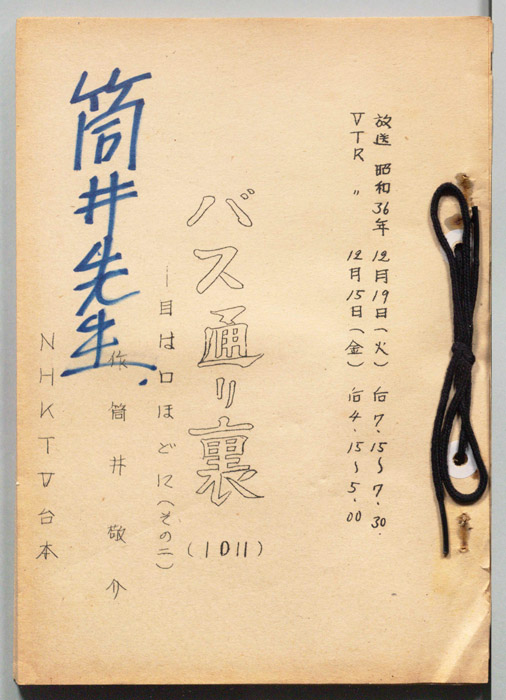 放送 昭和36年 12月19日(火) 后7.15~7.30.
VTR 〃 12月15日(金) 后4.15~5.00
バス通り裏
(1011)
―目は口ほどに(その二)
作 筒井敬介
筒井先生.
NHKTV台本